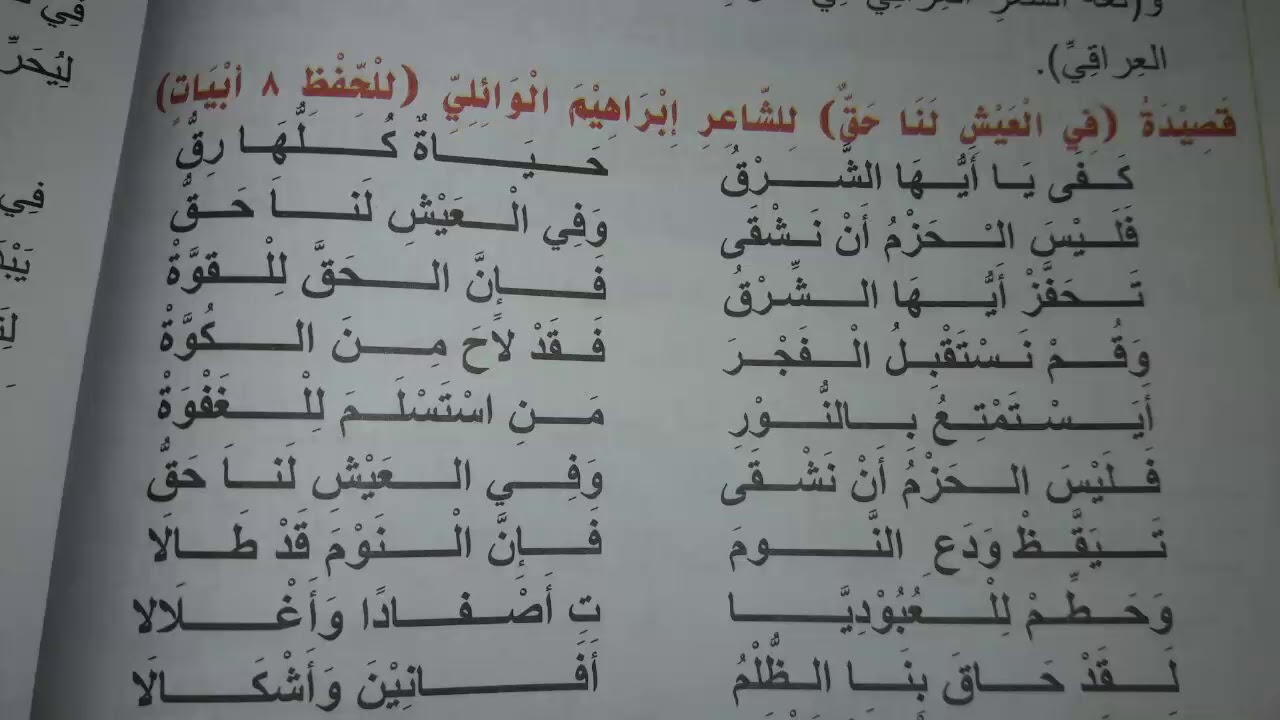 العِراقِيِّ).
قَصِيْدَةُ (في الْعَيْشِ لَنَا حَقٌّ) لِلشّاعِرِ إِبْرَاهِيْمَ الْوَائِلِيِّ (للْحِّفْظ ٨ أبْيَاتٍ)
كَفَى يَا أَيُّهَا الشَّرْقُ حَيَاةٌ كُلُّهَا رِقُّ
فَلَيْسَ الْحَزْمُ أَنْ نَشْقَى وَفِي الْعَيْشِ لَنَا حَقُّ
تَحَفَّزْ أَيُّهَا الشِّرْقُ فَإِنَّ الحَقَّ لِلْقوَّةْ
وَقُمْ نَسْتَقْبِلُ الْفَجْرَ فَقَدْ لاَحَ مِنَ الكُوَّةْ
أَيَسْتَمْتِعُ بِالنُّوْرِ مَنِ اسْتَسْلَمَ لِلْغَفْوَةْ
فَلَيْسَ الحَزْمُ أَنْ نَشْقَى وَفِي العَيْشِ لَنَا حَقُّ
تَيَقَّظْ وَدَعِ النَّومَ فَإِنَّ الْنَوْمَ قَدْ طَالَا
وَحَطِّمْ لِلْعُبُوْدِيَّا تِ أَصْفَادًا وَأَغْلَالا
لَقَدْ حَاقَ بِنَا الظُّلْمُ أَفَانِيْنَ وَأَشْكَالَا